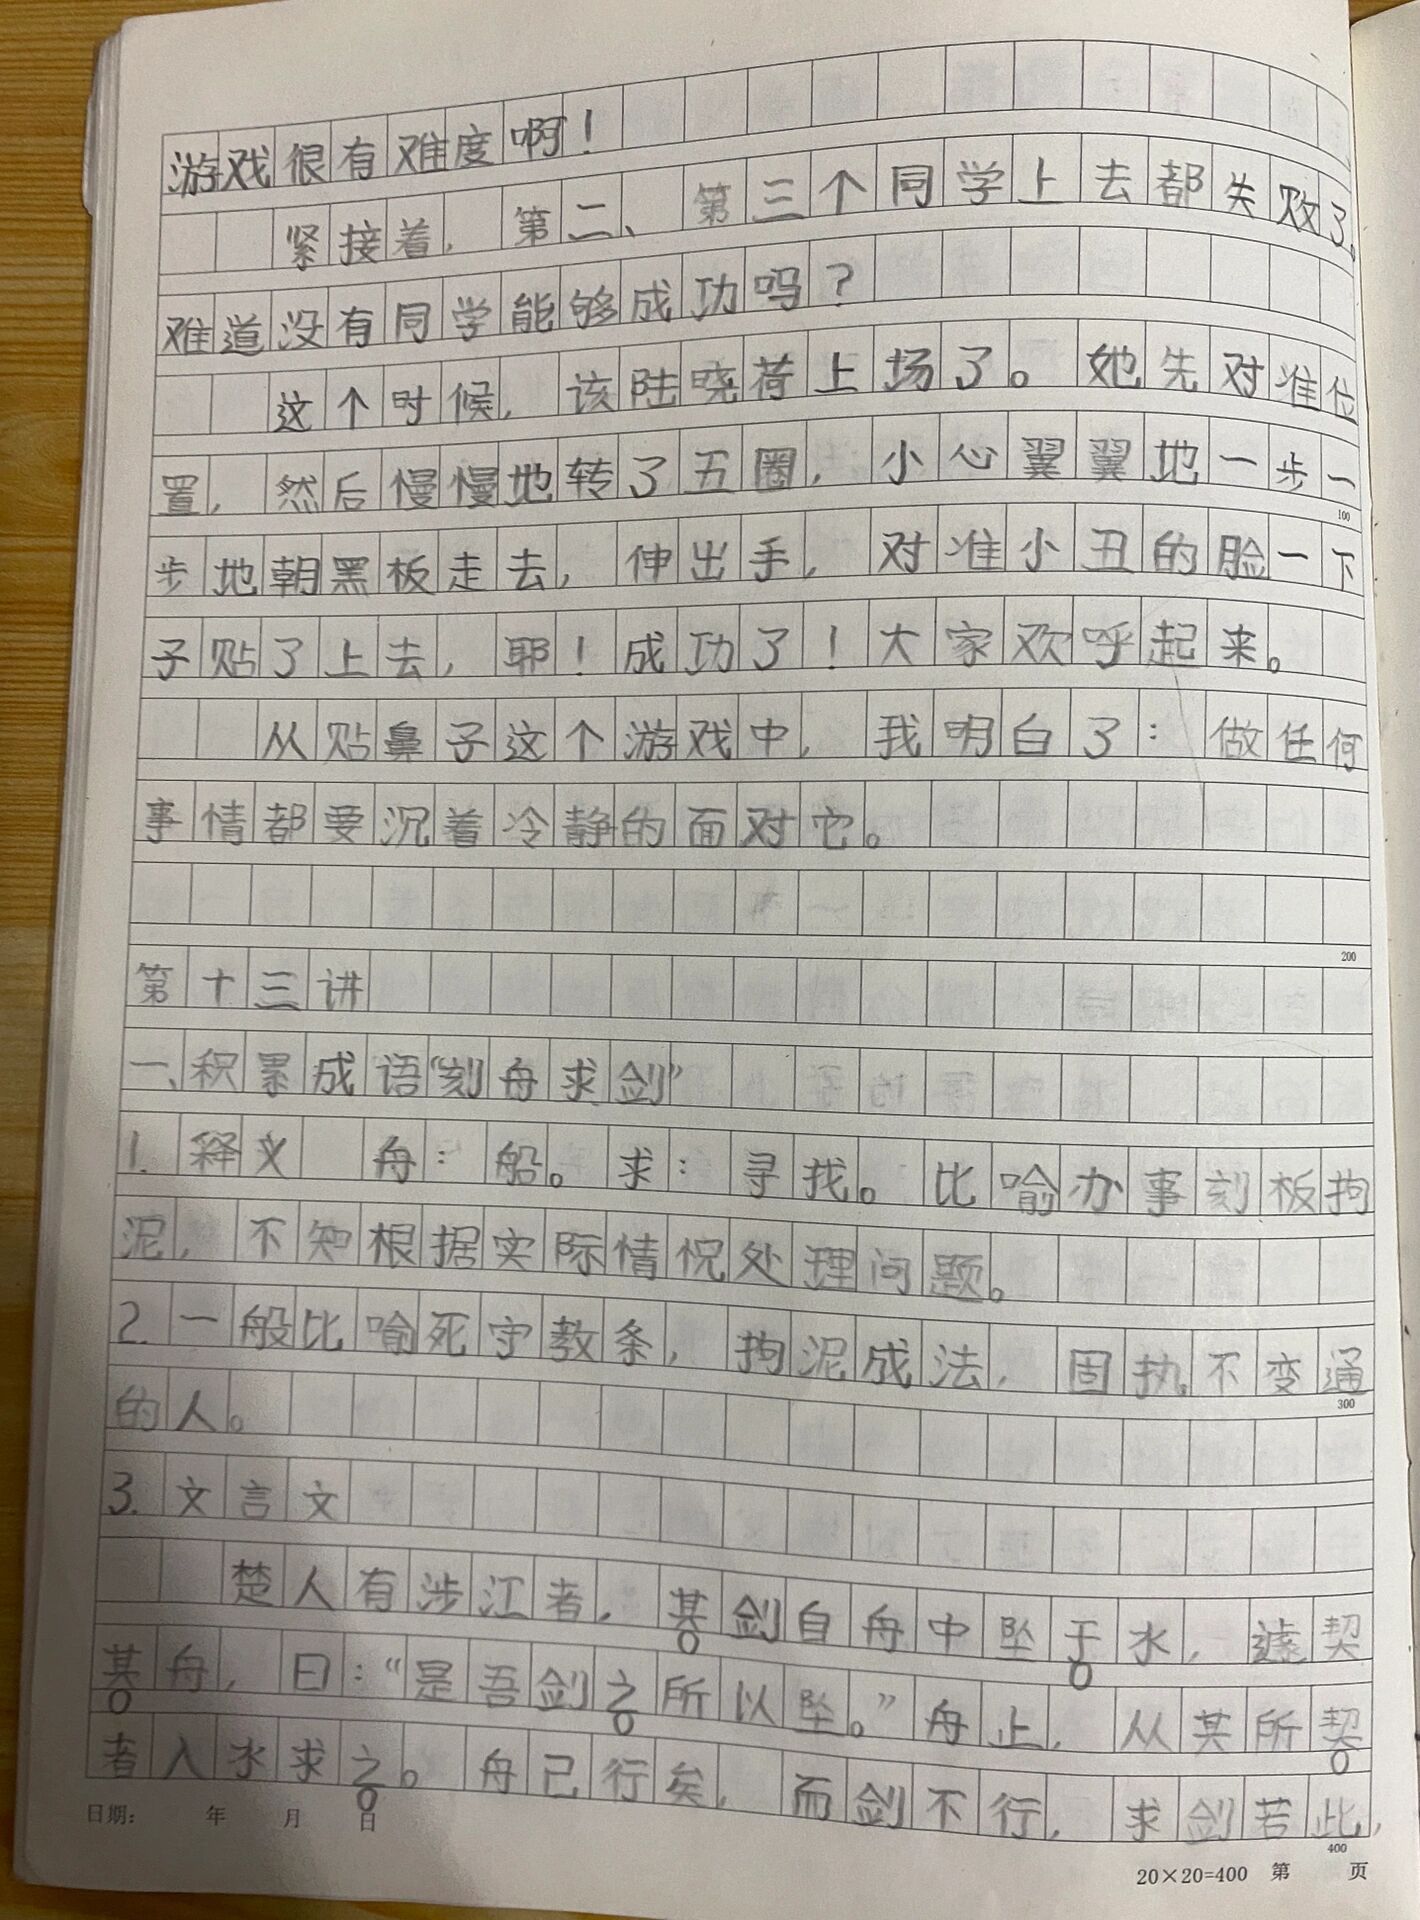 游戏很有难度啊！
紧接着，第二、第三个同学上去都失败了。
难道没有同学能够成功吗？
这个时候，该陆晓荷上场了。她先对准位
置，然后慢慢地转了五圈，小心翼翼地一步一
100
步地朝黑板走去，伸出手，对准小丑的脸一下
子贴了上去，耶！成功了！大家欢呼起来。
从贴鼻子这个游戏中，我明白了：做任何
事情都要沉着冷静的面对它。
200
第十三讲
一、积累成语“刻舟求剑”
1.释义 舟：船。求：寻找。比喻办事刻板拘
泥，不知根据实际情况处理问题。
2.一般比喻死守教条，拘泥成法，固执不变通
300
的人。
3.文言文
楚人有涉江者，其剑自舟中坠于水，遽契
其舟，曰：“是吾剑之所以坠。”舟止，从其所契
者入水求之。舟已行矣，而剑不行，求剑若此，
400
日期： 年 月 日
20×20=400 第 页